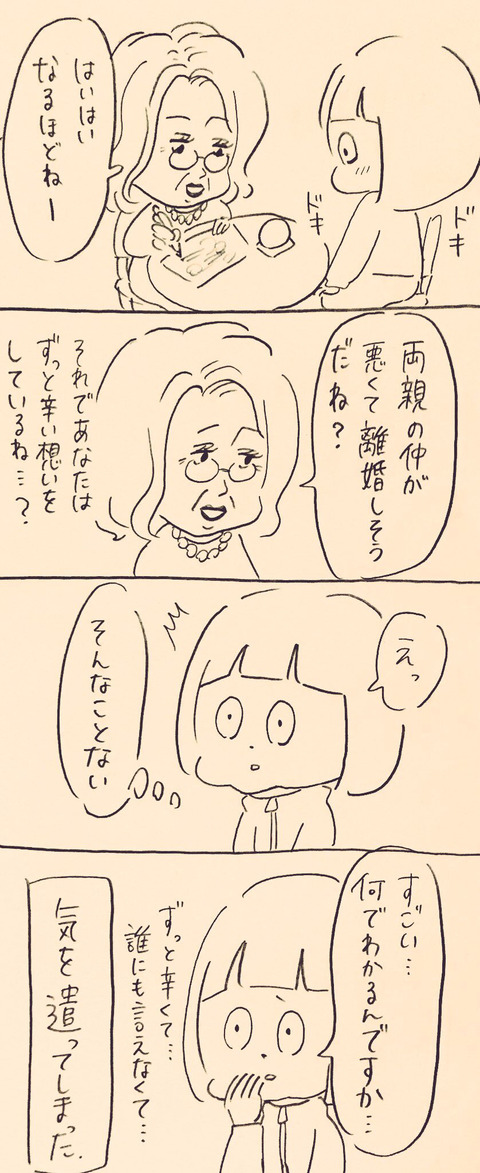 ドキ
ドキ
はいはい
なるほどねー
両親の仲が
悪くて離婚しそう
だね？
それであなたは
ずっと辛い想いを
しているね…？
えっ
そんなことない
すごい…
何でわかるんですか…
ずっと辛くて…
誰にも言えなくて…
気を遣ってしまった.